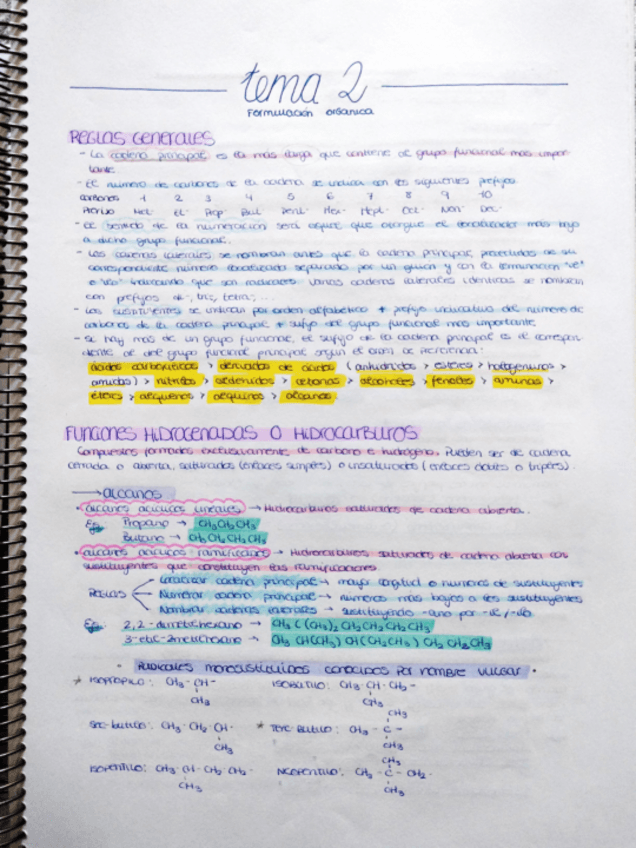 tema 2
Formulación orgánica
REGLAS GENERALES
- La cadena principal es la más larga que contiene el grupo funcional más impor-
tante.
- El número de carbonos de la cadena se indica con los siguientes prefijos:
carbonos 1 2 3 4 5 6 7 8 9 10
Prefijo Met- Et- Prop- But- Pent- Hex- Hept- Oct- Non- Dec-
- El sentido de la numeración será aquel que otorgue el localizador más bajo
a dicho grupo funcional.
- Las cadenas laterales se nombran antes que la cadena principal, precedidas de su
correspondiente número localizador separado por un guion y con la terminación "il"
o "ilo" indicando que son radicales. Varias cadenas laterales idénticas se nombran
con prefijos di-, tri-, tetra-, ...
- Los sustituyentes se indican por orden alfabético + prefijo indicativo del número de
carbonos de la cadena principal + sufijo del grupo funcional más importante.
- Si hay más de un grupo funcional, el sufijo de la cadena principal es el correspon-
diente al del grupo funcional principal según el orden de preferencia:
ácidos carboxílicos > derivados de ácidos (anhídridos > ésteres > halogenuros >
amidas) > nitrilos > aldehídos > cetonas > alcoholes > fenoles > aminas >
éteres > alquenos > alquinos > alcanos.
FUNCIONES HIDROGENADAS O HIDROCARBUROS
Compuestos formados exclusivamente de carbono e hidrógeno. Pueden ser de cadena
cerrada o abierta, saturados (enlaces simples) o insaturados (enlaces dobles o triples).
→ alcanos
• alcanos acíclicos lineales → Hidrocarburos saturados de cadena abierta.
Ej: Propano → CH3CH2CH3
Butano → CH3CH2CH2CH3
• alcanos acíclicos ramificados → Hidrocarburos saturados de cadena abierta con
sustituyentes que constituyen las ramificaciones.
Localizar cadena principal → mayor longitud o número de sustituyentes
Reglas Numerar cadena principal → números más bajos a los sustituyentes
Nombrar cadenas laterales → sustituyendo -ano por -il/-ilo
Ej: 2,2-dimetilhexano → CH3 C(CH3)2 CH2 CH2 CH2 CH3
3-etil-2metilhexano → CH3 CH(CH3) CH(CH2CH3) CH2 CH2 CH3
• Radicales monosustituidos conocidos por nombre vulgar •
* ISOPROPILO: CH3-CH- ISOBUTILO: CH3-CH-CH2-
CH3 CH3
CH3
SEC-BUTILO: CH3-CH2-CH- * TERC-BUTILO: CH3-C-
CH3 CH3
CH3
ISOPENTILO: CH3-CH-CH2-CH2- NEOPENTILO: CH3-C-CH2-
CH3 CH3